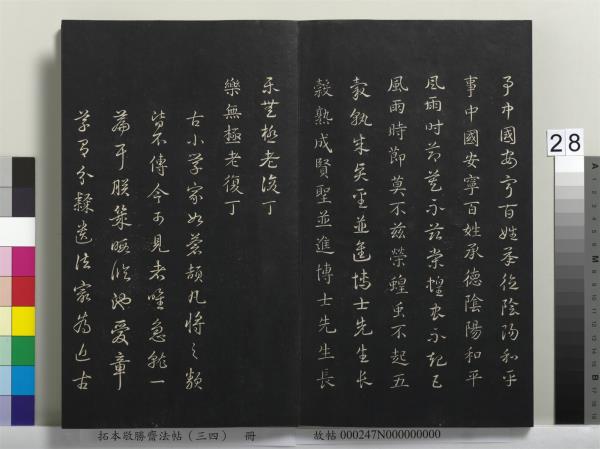 事中國安寧百姓承德陰陽和平
事中國安寧百姓承德陰陽和平
風雨時節莫不茲榮蝗虫不起五
風雨時節莫不茲榮蝗虫不起五
穀熟成賢聖並進博士先生長
穀熟成賢聖並進博士先生長
樂無極老復丁
樂無極老復丁
古小學家如蒼頡凡將之類
皆不傳今可見者唯急就一
篇愛章
草有分隸遺法家為近古
28
拓本敬勝齋法帖（三四） 冊 故帖 000247N000000000